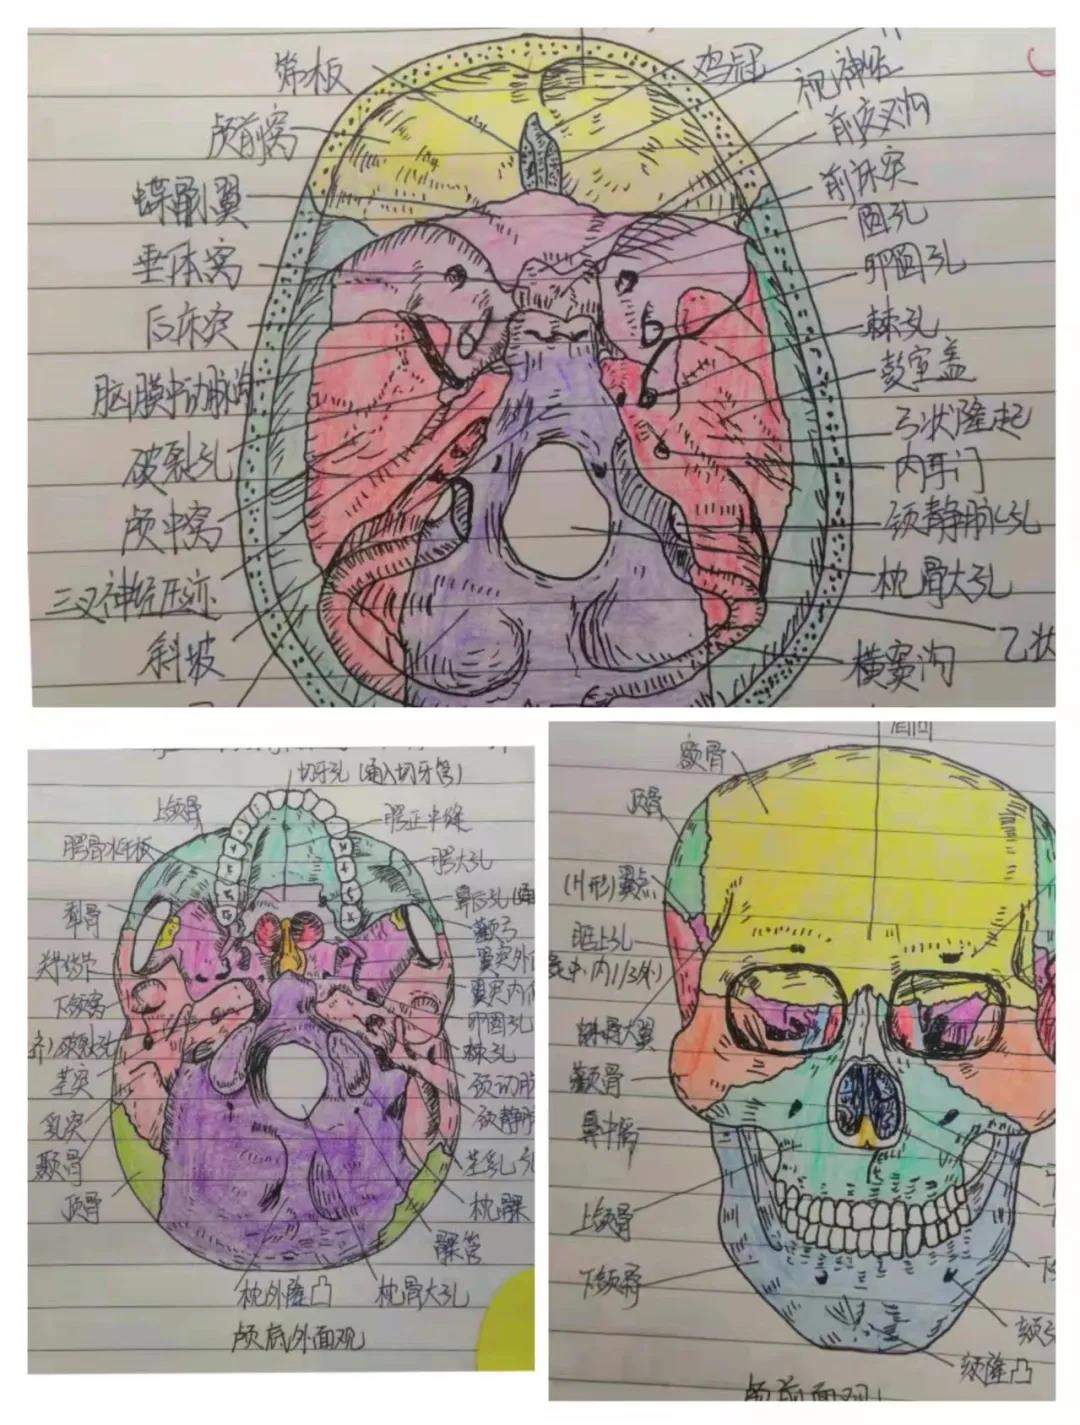 筛板
颅前窝
蝶骨小翼
垂体窝
后床突
脑膜中动脉沟
破裂孔
颅中窝
三叉神经压迹
斜坡
鸡冠
视神经
前交叉沟
前床突
圆孔
卵圆孔
棘孔
鼓室盖
弓状隆起
内耳门
颈静脉孔
枕骨大孔
乙状
横窦沟
切牙孔(通入切牙管)
上颌骨
腭骨水平板
犁骨
关节结节
下颌窝
破裂孔
茎突
乳突
颞骨
顶骨
腭正中缝
腭大孔
鼻后孔
颧弓
翼突外
翼突内
卵圆孔
棘孔
颈动脉
颈静脉
茎乳孔
枕髁
髁管
枕外隆凸
枕骨大孔
颅底外面观
眉间
额骨
顶骨
(H形)翼点
眶上孔
中、内1/3处)
蝶骨大翼
颧骨
鼻中隔
上颌骨
下颌骨
下
颏孔
颏隆凸
颅前面观